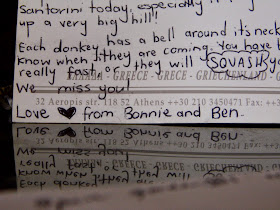 Santorini today, especially
up a very big hill!
Each donkey has a bell around it's neck
know when they are coming. You have
really fast or they will SQUASH yo
GREECE - GRECE - GRIECHENLAND -
We miss you!
32 Aeropis str. 118 52 Athens ++30 210 3450471 Fax: ++
Love ♥ from Bonnie and Ben.